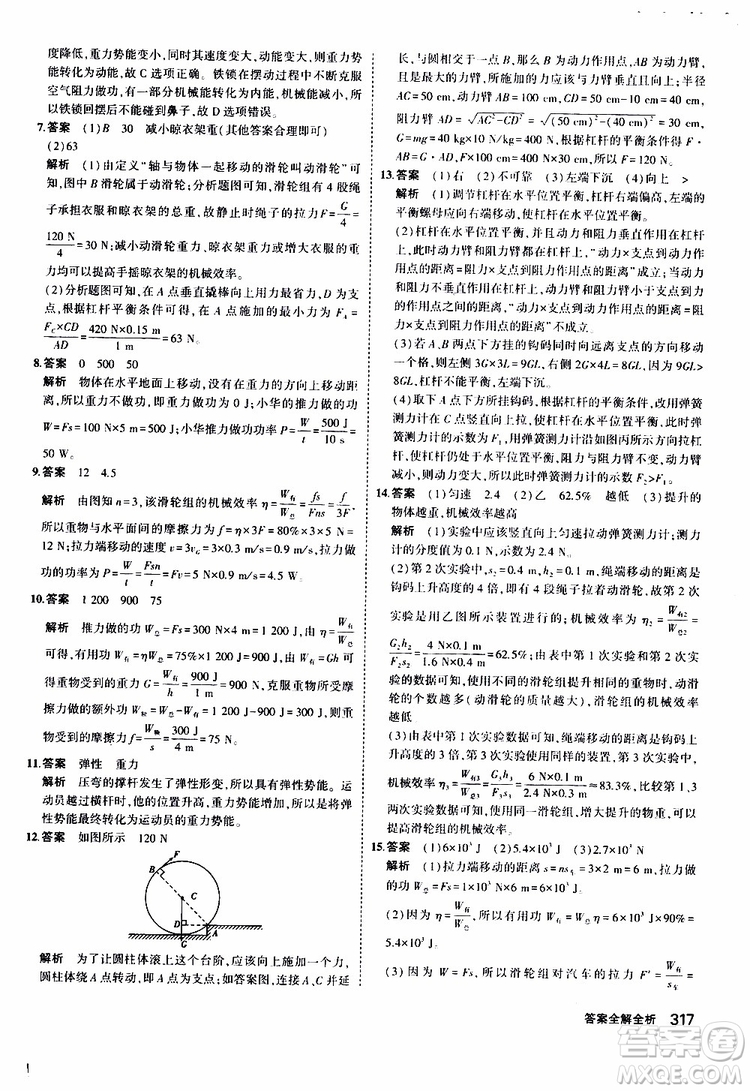 度降低,重力势能变小,同时其速度变大,动能变大,重力势
能转化为动能,故 C 选项正确。铁锁在摆动过程中克服
空气阻力做功,一部分机械能转化为内能,机械能减小,所
以铁锁摆回后不能碰到鼻子,故 D 选项错误。
7.答案 (1)B 30 减小晾衣架重(其他答案合理即可)
(2)63
解析 (1)由定义“轴与物体一起移动的滑轮叫动滑轮”可
知,图中 B 滑轮属于动滑轮;分析题图可知,滑轮组有 4 股绳
子承担衣服和晾衣架的总重,故此时绳子的拉力 F=G/4=
120 N/4=30 N;减小动滑轮重力、晾衣架重力或增大衣服的重
力均可以提高手摇晾衣架的机械效率。
(2)分析题图可知,在 A 点垂直撬棒向上用力最省力,D 为支
点,根据杠杆平衡条件可知,在 A 点施加的最小力为 F_A=
F_C×CD/AD=420 N×0.15 m/1 m=63 N。
8.答案 0 500 50
解析 物体在水平地面上移动,没有在重力的方向上移动距
离,所以重力不做功,即重力做功为 0 J;小华推力做的功为
W=Fs=100 N×5 m=500 J;小华推力做功的功率 P=W/t=500 J/10 s=
50 W。
9.答案 12 4.5
解析 由图知 n=3,该滑轮组的机械效率 η=W有/W总=fs/Fns=f/3F,
所以重物与水平面间的摩擦力为 f=η×3F=80%×3×5 N=
12 N;拉力端移动的速度 v=3v_G=3×0.3 m/s=0.9 m/s,拉力做
功的功率为 P=W/t=Fsn/t=Fv=5 N×0.9 m/s=4.5 W。
10.答案 1 200 900 75
解析 推力做的功 W总=Fs=300 N×4 m=1 200 J;由 η=W有/W总
可得,有用功 W有=ηW总=75%×1 200 J=900 J;由 W有=Gh
得重物受到的重力 G=W有/h=900 J/1 m=900 N,克服重物所受摩
擦力做的额外功 W额=W总-W有=1 200 J-900 J=300 J,则重
物受到的摩擦力 f=W额/s=300 J/4 m=75 N。
11.答案 弹性 重力
解析 压弯的撑杆发生了弹性形变,所以具有弹性势能。运
动员越过横杆时,他的位置升高,重力势能增大,所以是将弹
性势能最终转化为运动员的重力势能。
12.答案 如图所示 120 N
F
B
C
D
A
G
解析 为了让圆柱体滚上这个台阶,应该向上施加一个力,
圆柱体绕 A 点转动,即 A 点为支点;如答案图,连接 AC 并延
长,与圆相交于一点 B,那么 B 为动力作用点,AB 为动力臂
时,所施加的力最小,且力的方向应该与力臂垂直向上;半径
AC=50 cm,动力臂 AB=100 cm,CD=50 cm-10 cm=40 cm,
阻力臂 AD=√AC²-CD²=√(50 cm)²-(40 cm)²=30 cm,
G=mg=40 kg×10 N/kg=400 N,根据杠杆平衡条件得 F×AB=
G×AD,则 F=120 N。
13.答案 (1)右 (2)不可靠 (3)左端下沉 (4)向上 >
解析 (1)调节杠杆在水平位置平衡时,杠杆右端偏高,左端的
平衡螺母应向右端移动,使杠杆在水平位置平衡。
(2)杠杆在水平位置平衡,动力和阻力垂直作用在杠杆上,
此时杠杆在水平位置平衡,“动力×支点到动力作用点的
距离=阻力×支点到阻力作用点的距离”成立;当动力和阻
力不垂直作用在杠杆上,“动力×支点到动力作用点的距
离=阻力×支点到阻力作用点的距离”不成立。
(3)若 A、B 两点下方挂的钩码同时向远离支点方向移动一
格,根据杠杆的平衡条件,左侧 3G×3L=9GL,右侧 2G×4L=
8GL,9GL>8GL,杠杆左端下沉。
(4)取下 A 点下方所挂钩码,根据杠杆的平衡条件,改用弹簧
测力计在 C 点竖直向上拉,杠杆在水平位置平衡时,此时弹
簧测力计的示数为 F₁;用弹簧测力计如图丙所示方向拉杠
杆,使杠杆仍处于水平位置平衡,阻力与阻力臂不变,动力臂
减小,动力增大,所以弹簧测力计的示数 F₂>F₁。
14.答案 (1)匀速 2.4 (2)乙 62.5% 越低 (3)提升的
物体越重,机械效率越高
解析 (1)实验中应该竖直向上匀速拉动弹簧测力计;测力
计的分度值为 0.2 N,示数为 2.4 N。
(2)第 2 次实验中,s₂=0.4 m,h₂=0.1 m,绳端移动距离是
钩码上升高度的 4 倍,说明有 4 段绳子拉着动滑轮,故第 2 次
实验是用乙图所示装置进行的;机械效率 η₂=W有₂/W总₂=
G₂h₂/F₂s₂=4 N×0.1 m/1.6 N×0.4 m=62.5%;由表中第 1 次实验和第 2 次实验的
数据可知,使用不同的滑轮组提升相同的重物时,动滑轮
轮的个数越多(动滑轮的质量越大),滑轮组的机械效率
越低
(3)由表中第 1 次实验数据知,绳端移动距离是钩码上升
高度的 3 倍,故第 3 次实验使用了甲滑轮组;第 3 次实验
机械效率 η₃=W有₃/W总₃=G₃h₃/F₃s₃=6 N×0.1 m/2.4 N×0.3 m≈83.3%;由第 1、3
两次实验数据可知,同一滑轮组,增加所提升的物重,可以
提高滑轮组的机械效率。
15.答案 (1)6×10³ J (2)5.4×10³ J (3)2.7×10³ N
解析 (1)拉力端移动的距离 s=ns车=3×2 m=6 m,拉力
做的功 W总=Fs=1.0×10³ N×6 m=6×10³ J。
(2)因为 η=W有/W总,所以有用功 W有=W总η=6×10³ J×90%=
5.4×10³ J。
(3)因为 W=Fs,所以滑轮组对汽车的拉力 F'=W有/s车=
答案全解全析 317
答案圈
MXQE.COM